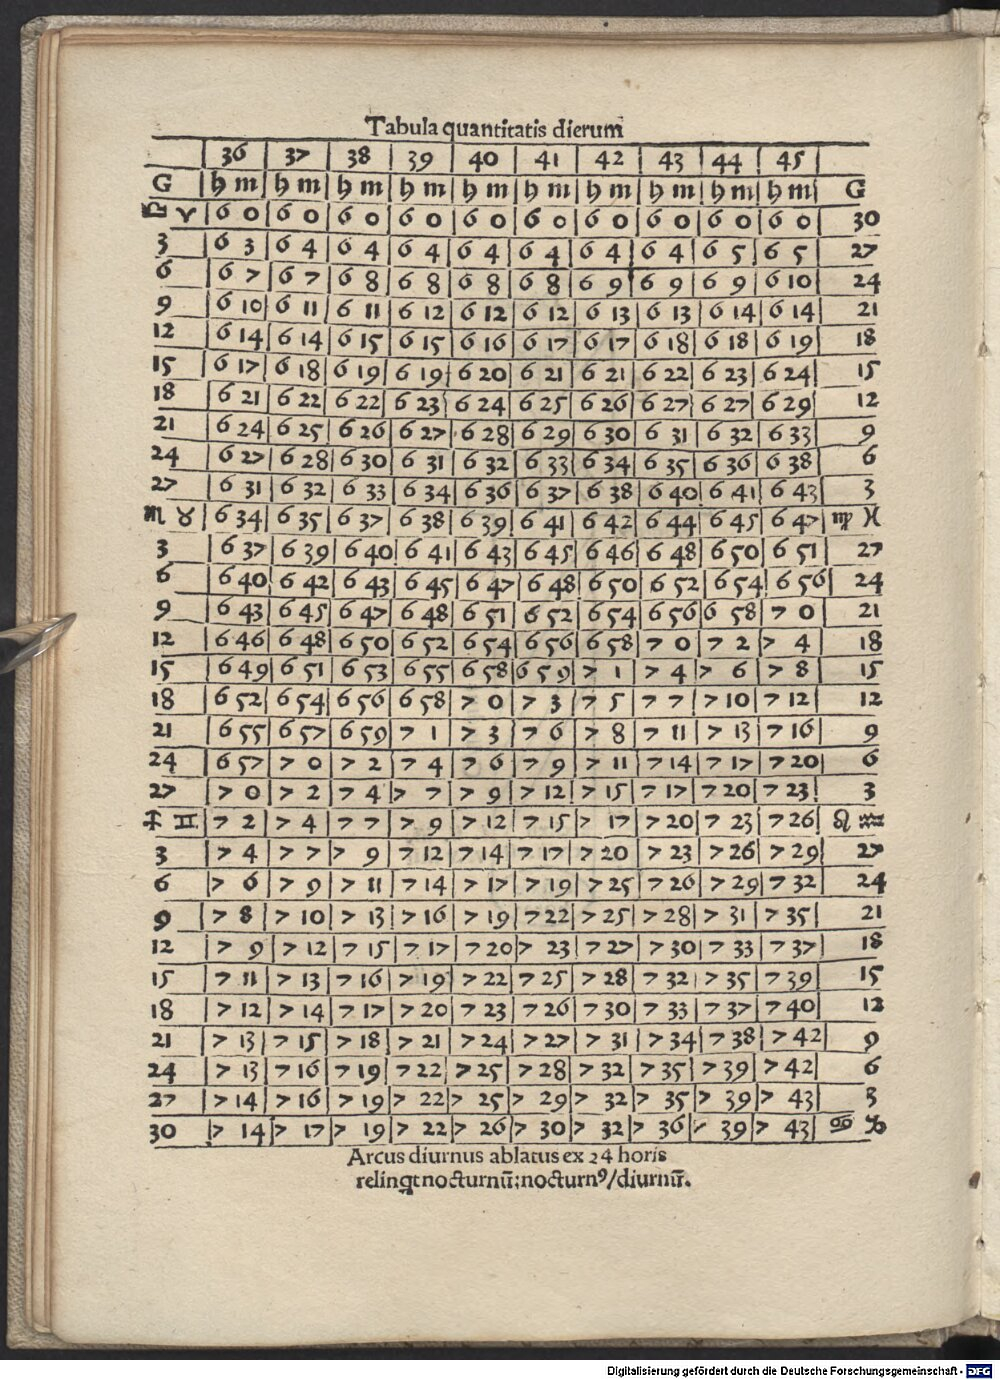 Tabula quantitatis dierum
36 37 38 39 40 41 42 43 44 45
G h m h m h m h m h m h m h m h m h m h m G
♎ ♈ 6 0 6 0 6 0 6 0 6 0 6 0 6 0 6 0 6 0 6 0 30
3 6 3 6 4 6 4 6 4 6 4 6 4 6 4 6 4 6 5 6 5 27
6 6 7 6 7 6 8 6 8 6 8 6 8 6 9 6 9 6 9 6 10 24
9 6 10 6 11 6 11 6 12 6 12 6 12 6 13 6 13 6 14 6 14 21
12 6 14 6 14 6 15 6 15 6 16 6 17 6 17 6 18 6 18 6 19 18
15 6 17 6 18 6 19 6 19 6 20 6 21 6 21 6 22 6 23 6 24 15
18 6 21 6 22 6 22 6 23 6 24 6 25 6 26 6 27 6 27 6 29 12
21 6 24 6 25 6 26 6 27 6 28 6 29 6 30 6 31 6 32 6 33 9
24 6 27 6 28 6 30 6 31 6 32 6 33 6 34 6 35 6 36 6 38 6
27 6 31 6 32 6 33 6 34 6 36 6 37 6 38 6 40 6 41 6 43 3
♏ ♉ 6 34 6 35 6 37 6 38 6 39 6 41 6 42 6 44 6 45 6 47 ♍ ♓
3 6 37 6 39 6 40 6 41 6 43 6 45 6 46 6 48 6 50 6 51 27
6 6 40 6 42 6 43 6 45 6 47 6 48 6 50 6 52 6 54 6 56 24
9 6 43 6 45 6 47 6 48 6 51 6 52 6 54 6 56 6 58 7 0 21
12 6 46 6 48 6 50 6 52 6 54 6 56 6 58 7 0 7 2 7 4 18
15 6 49 6 51 6 53 6 55 6 58 6 59 7 1 7 4 7 6 7 8 15
18 6 52 6 54 6 56 6 58 7 0 7 3 7 5 7 7 7 10 7 12 12
21 6 55 6 57 6 59 7 1 7 3 7 6 7 8 7 11 7 13 7 16 9
24 6 57 7 0 7 2 7 4 7 6 7 9 7 11 7 14 7 17 7 20 6
27 7 0 7 2 7 4 7 7 7 9 7 12 7 15 7 17 7 20 7 23 3
♐ ♊ 7 2 7 4 7 7 7 9 7 12 7 15 7 17 7 20 7 23 7 26 ♌ ♒
3 7 4 7 7 7 9 7 12 7 14 7 17 7 20 7 23 7 26 7 29 27
6 7 6 7 9 7 11 7 14 7 17 7 19 7 25 7 26 7 29 7 32 24
9 7 8 7 10 7 13 7 16 7 19 7 22 7 25 7 28 7 31 7 35 21
12 7 9 7 12 7 15 7 17 7 20 7 23 7 27 7 30 7 33 7 37 18
15 7 11 7 13 7 16 7 19 7 22 7 25 7 28 7 32 7 35 7 39 15
18 7 12 7 14 7 17 7 20 7 23 7 26 7 30 7 33 7 37 7 40 12
21 7 13 7 15 7 18 7 21 7 24 7 27 7 31 7 34 7 38 7 42 9
24 7 13 7 16 7 19 7 22 7 25 7 28 7 32 7 35 7 39 7 42 6
27 7 14 7 16 7 19 7 22 7 25 7 29 7 32 7 35 7 39 7 43 3
30 7 14 7 17 7 19 7 22 7 26 7 30 7 32 7 36 7 39 7 43 ♋ ♑
Arcus diurnus ablatus ex 24 horis
relinqt nocturnū: nocturnꝰ/diurnū.
Digitalisierung gefördert durch die Deutsche Forschungsgemeinschaft - DFG